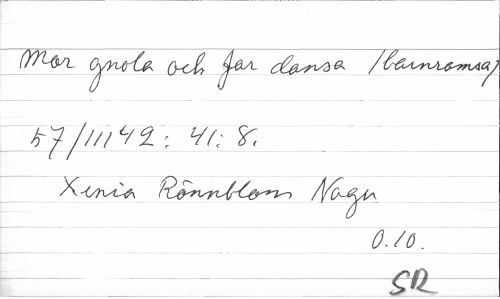 Mor gnola och far dansa /barnramsa/
57/11142: 41: 8.
Xenia Rönnblom Nagu
0.10.
SR